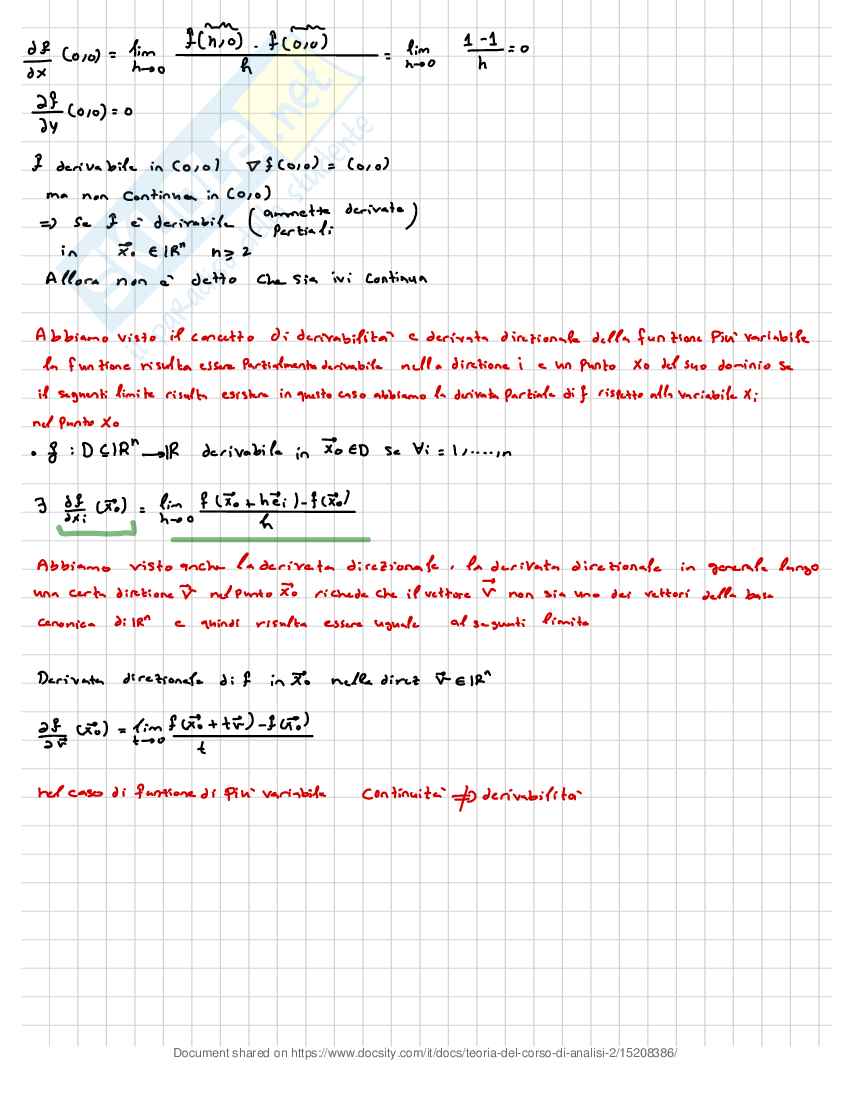 ∂f/∂x (0,0) = lim h→0 f(h,0) - f(0,0) / h = lim h→0 1-1 / h = 0
∂f/∂y (0,0) = 0
f derivabile in (0,0) ∇f(0,0) = (0,0)
ma non continua in (0,0)
=> Se f è derivabile (ammette derivate parziali)
in x⃗₀ ∈ ℝⁿ n ≥ 2
Allora non è detto che sia ivi continua
Abbiamo visto il concetto di derivabilità e derivata direzionale della funzione più variabile
la funzione risulta essere parzialmente derivabile nella direzione i e un punto x₀ del suo dominio se
il seguenti limite risulta esistere in questo caso abbiamo la derivata parziale di f rispetto alla variabile xᵢ
nel punto x₀
• f : D ⊆ ℝⁿ → ℝ derivabile in x⃗₀ ∈ D se ∀i = 1,....,n
∃ ∂f/∂xᵢ (x⃗₀) = lim h→0 f(x⃗₀ + he⃗ᵢ) - f(x⃗₀) / h
Abbiamo visto anche la derivata direzionale, la derivata direzionale in generale lungo
una certa direzione v⃗ nel punto x⃗₀ richede che il vettore v⃗ non sia uno dei vettori della base
canonica di ℝⁿ e quindi risulta essere uguale al seguenti limite
Derivata direzionale di f in x⃗₀ nella direz v⃗ ∈ ℝⁿ
∂f/∂v⃗ (x⃗₀) = lim t→0 f(x⃗₀ + tv⃗) - f(x⃗₀) / t
nel caso di funzione di più variabile continuità ⇏ derivabilità
Document shared on https://www.docsity.com/it/docs/teoria-del-corso-di-analisi-2/15208386/